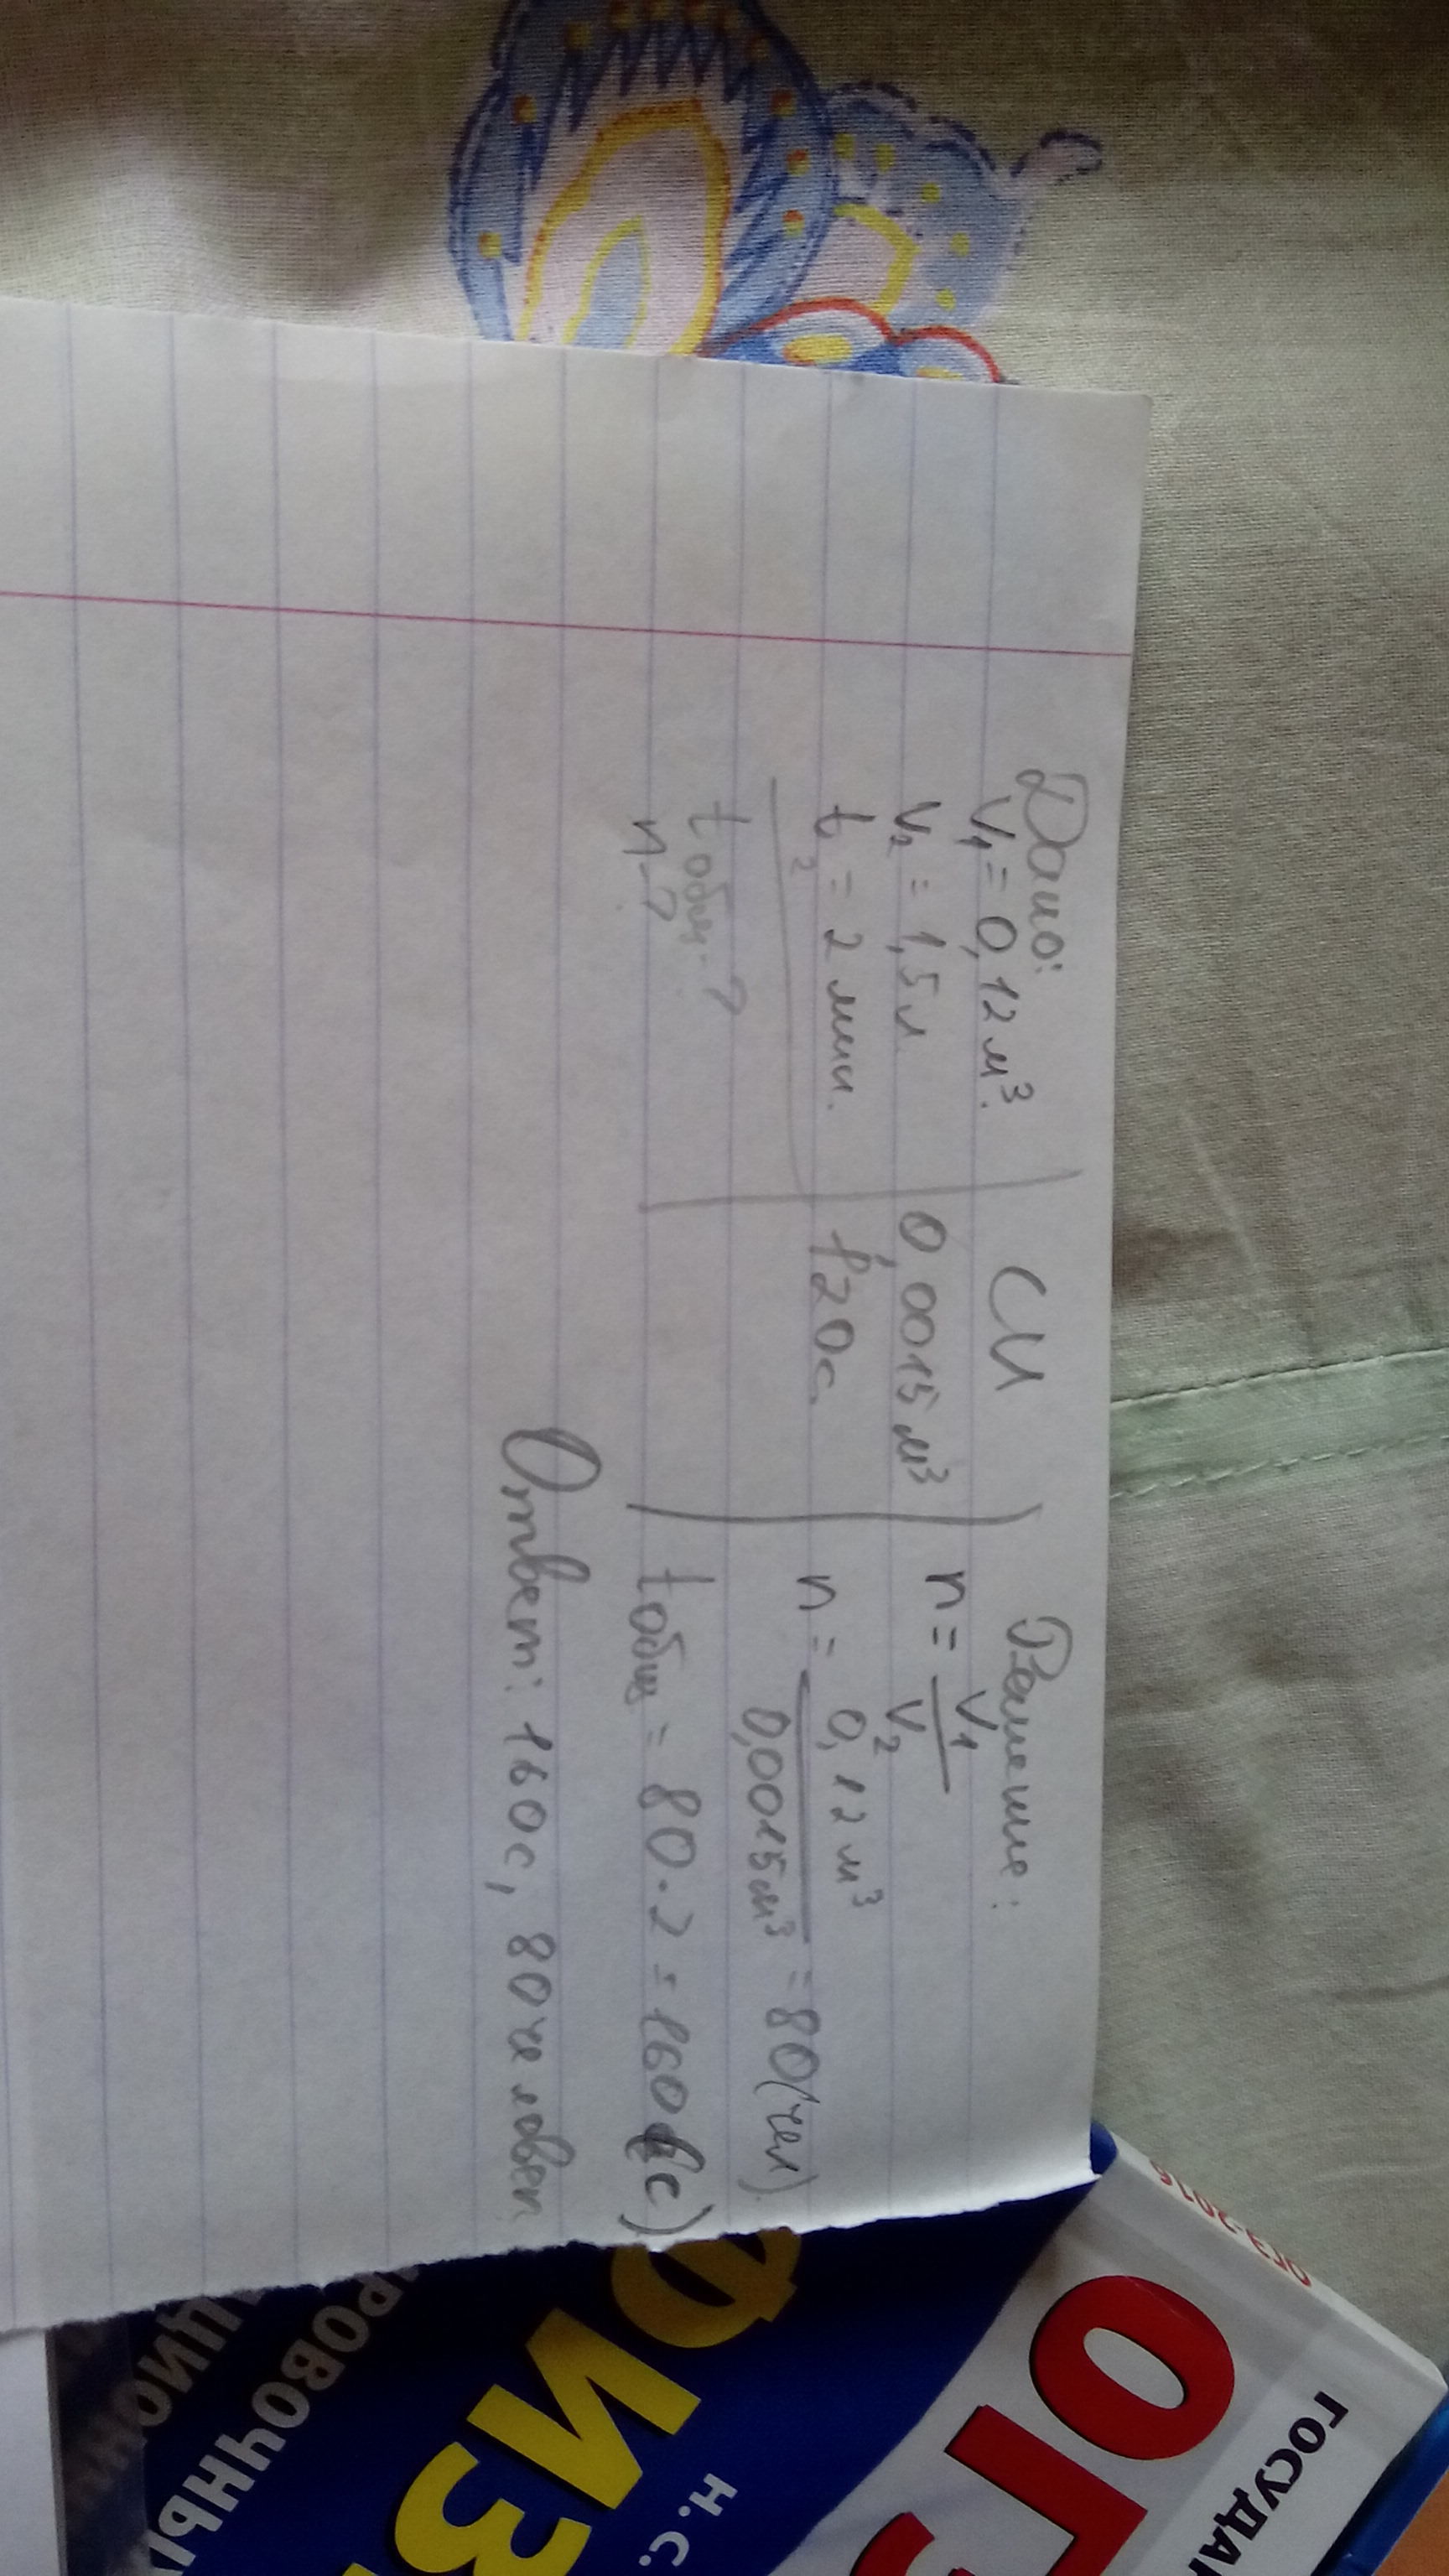 Дано:
V₁ = 0,12 м³.
V₂ = 1,5 л.
t₂ = 2 мин.
t общ - ?
n - ?
СИ
0,0015 м³
120 с.
Решение:
n = V₁ / V₂
n = 0,12 м³ / 0,0015 м³ = 80 (чел).
t общ = 80 · 2 = 160 (с)
Ответ: 160 с, 80 человек
ОГЭ-2016
ГОСУДАР
ОГЭ
Н.С.
ФИЗ
РОВОЧНЫ
ЦИОНН